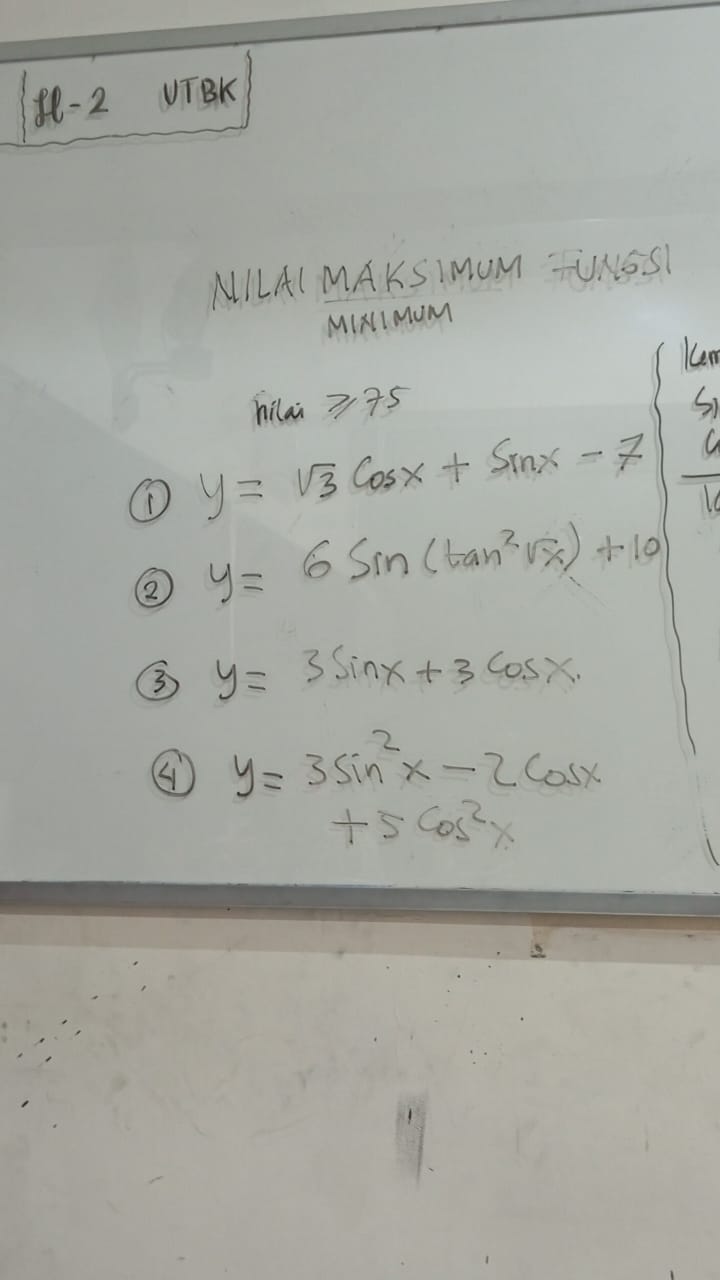 H-2 UTBK
NILAI MAKSIMUM FUNGSI
MINIMUM
nilai ≥ 75
① y = √3 Cosx + Sinx - 7
② y = 6 Sin (tan² √x) + 10
③ y = 3 Sinx + 3 Cosx.
④ y = 3 Sin²x - 2 Cosx
+ 5 Cos²x